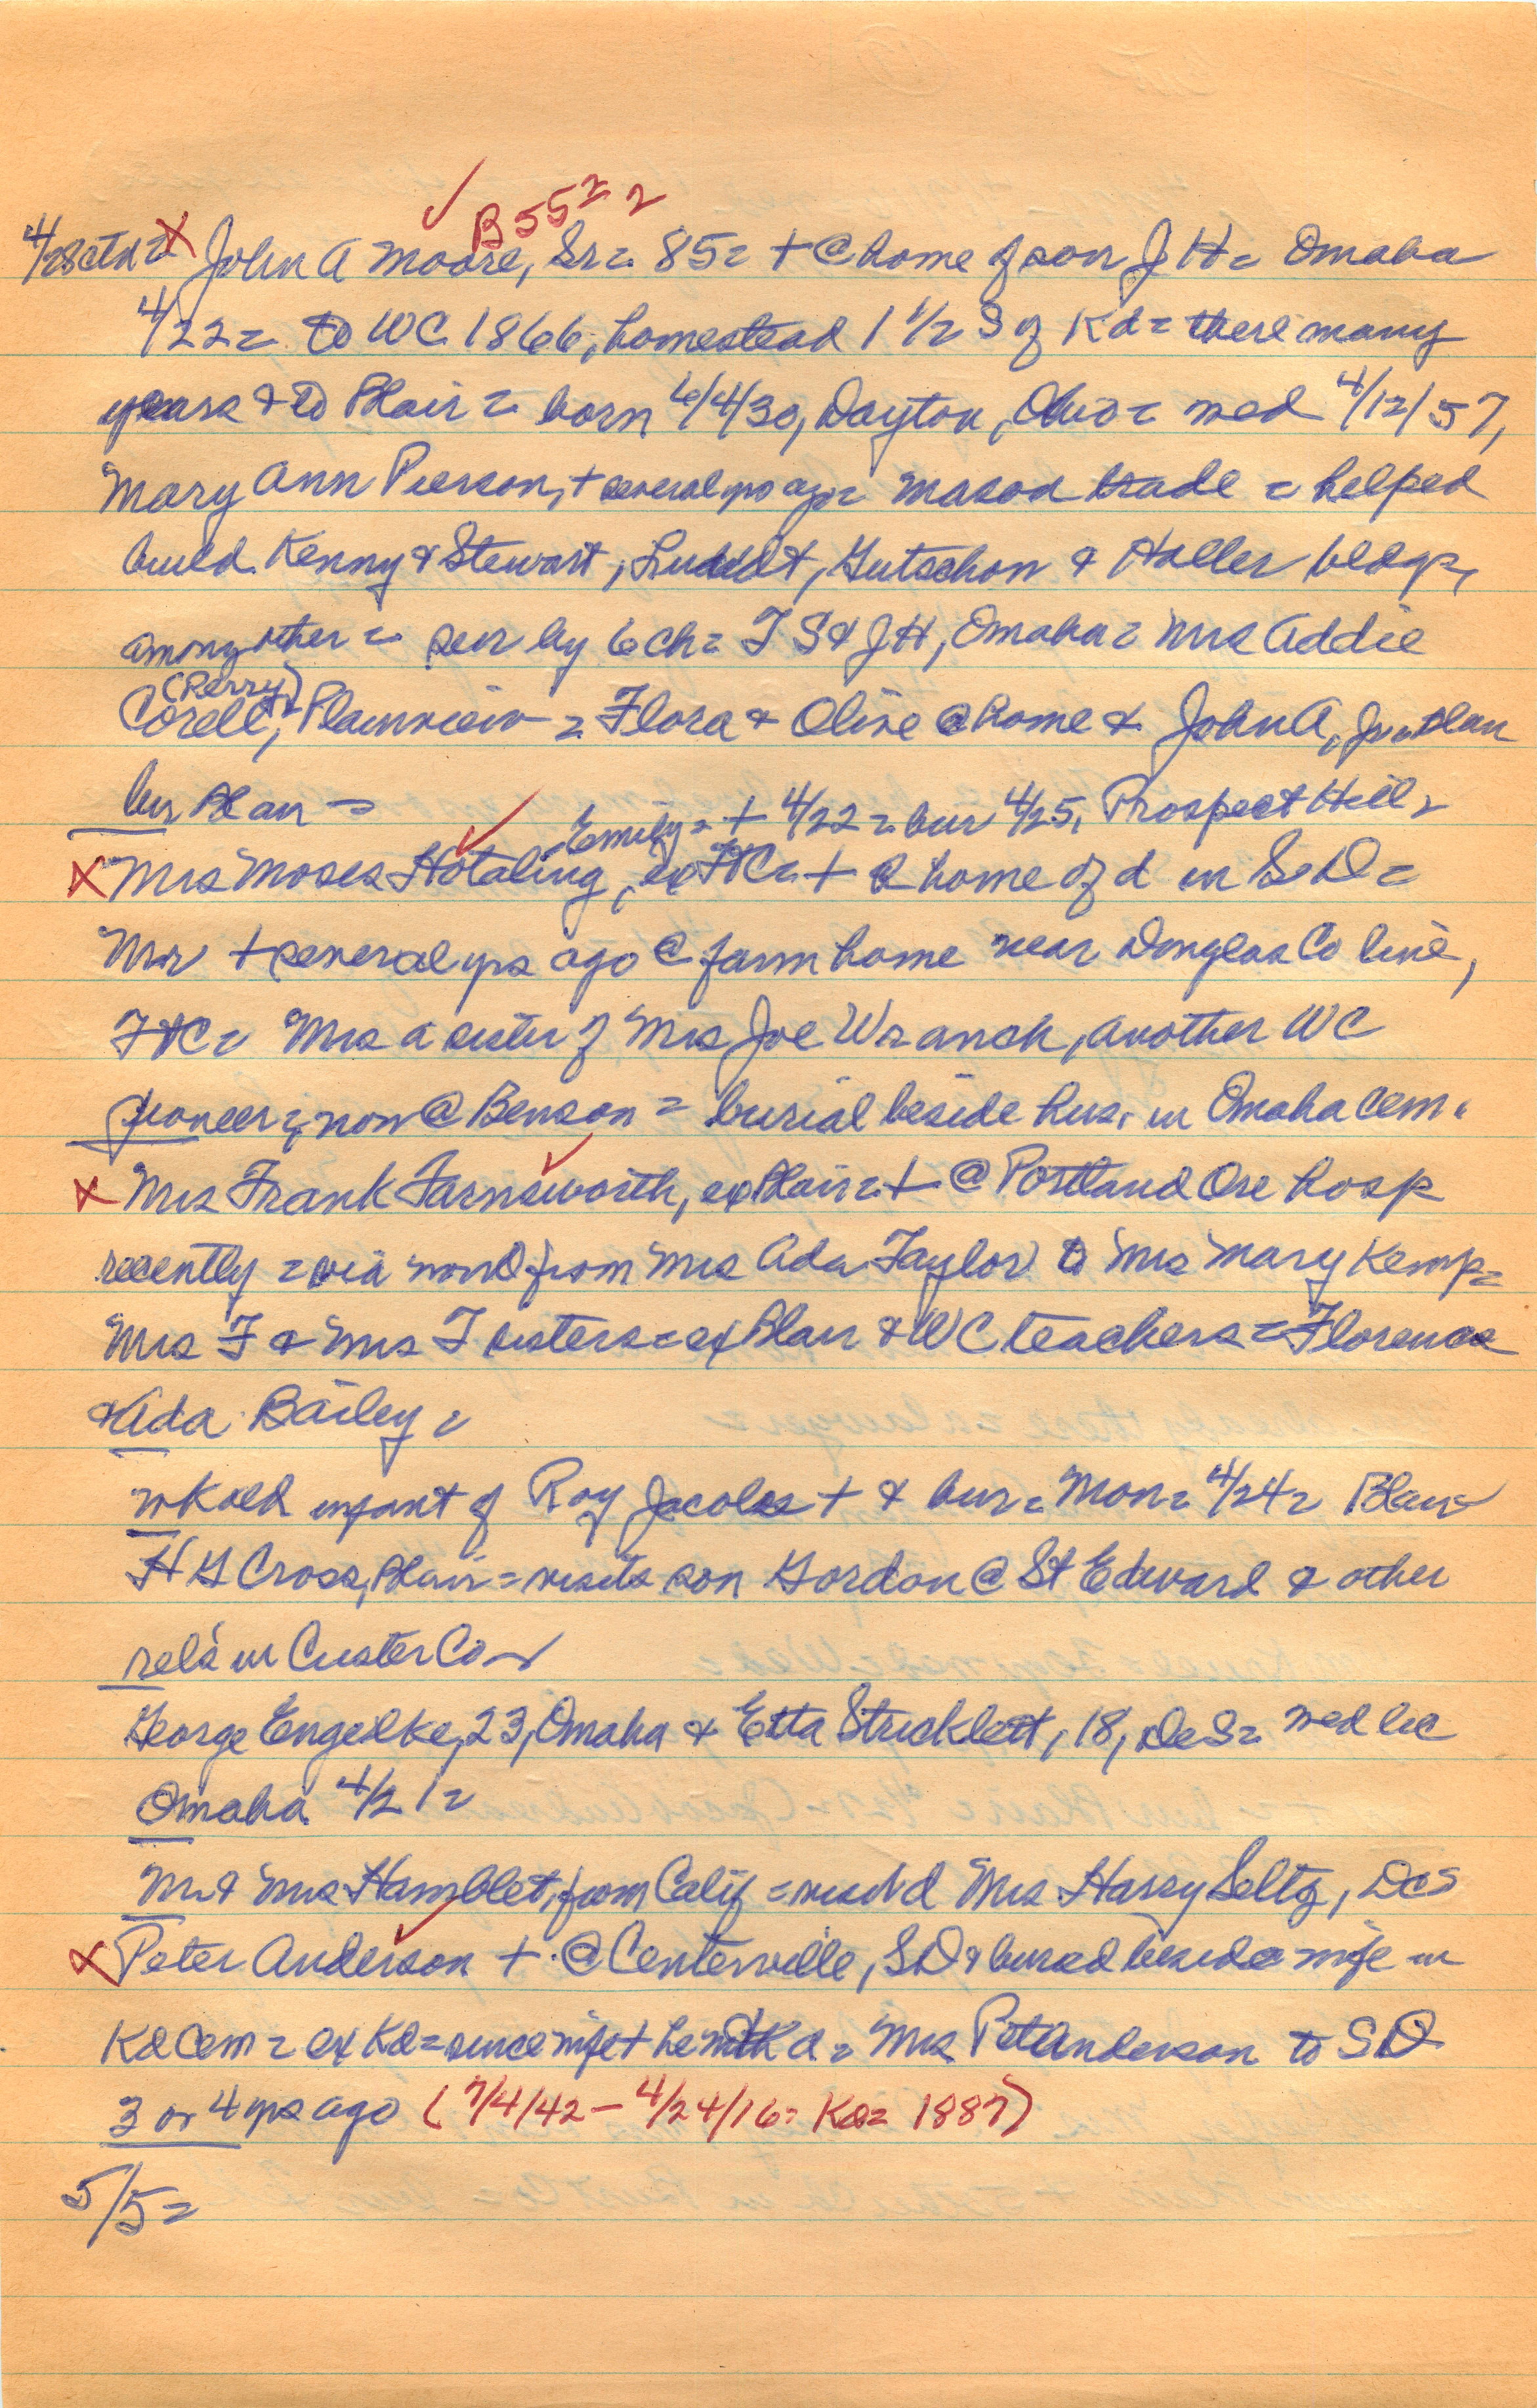 B 55 2 2
4/28 ctd = X John A Moore, Sr = 85 = + @ home of son J H = Omaha
4/22 = to WC 1866, homestead 1 1/2 S of Kd = there many
years & to Blair = born 6/4/30, Dayton, Ohio = med 4/12/57,
Mary Ann Pierson, + several yrs ago = mason trade = helped
build Kenny & Stewart, Gutschon & Haller bldgs,
among other = sur by 6 ch = T S & J H, Omaha = Mrs Addie
(Perry)
Corell, Plainview = Flora & Olive @ home & John A, Jr
bur Blair =
Emily = + 4/22 = bur 4/25, Prospect Hill =
X Mrs Moses Hotaling, ex FtC = + @ home of d in S D =
Mr + several yrs ago @ farm home near Douglas Co line,
FtC = Mrs a sister of Mrs Joe Wranch, another WC
pioneer, now @ Benson = burial beside hus. in Omaha cem.
X Mrs Frank Farnsworth, ex Blair = + @ Portland Ore hosp
recently = via word from Mrs Ada Taylor to Mrs Mary Kemp =
Mrs F & Mrs T sisters = ex Blair & WC teachers = Florence
& Ada Bailey =
wk old infant of Roy Jacobs + & bur = Mon = 4/24 = Blair
H G Cross, Blair = visits son Gordon @ St Edward & other
rels in Custer Co
George Engelke, 23, Omaha & Etta Stricklett, 18, DeS = wed lic
Omaha 4/21 =
Mr & Mrs Hamblet, from Calif = visit'd Mrs Harry Seltz, DeS
X Peter Anderson + @ Centerville, SD & buried beside wife in
Kd Cem = ex Kd = since wife + he Kd = Mrs Pet Anderson to SD
3 or 4 yrs ago (7/4/42 - 4/24/16 = Kd = 1887)
5/5 =